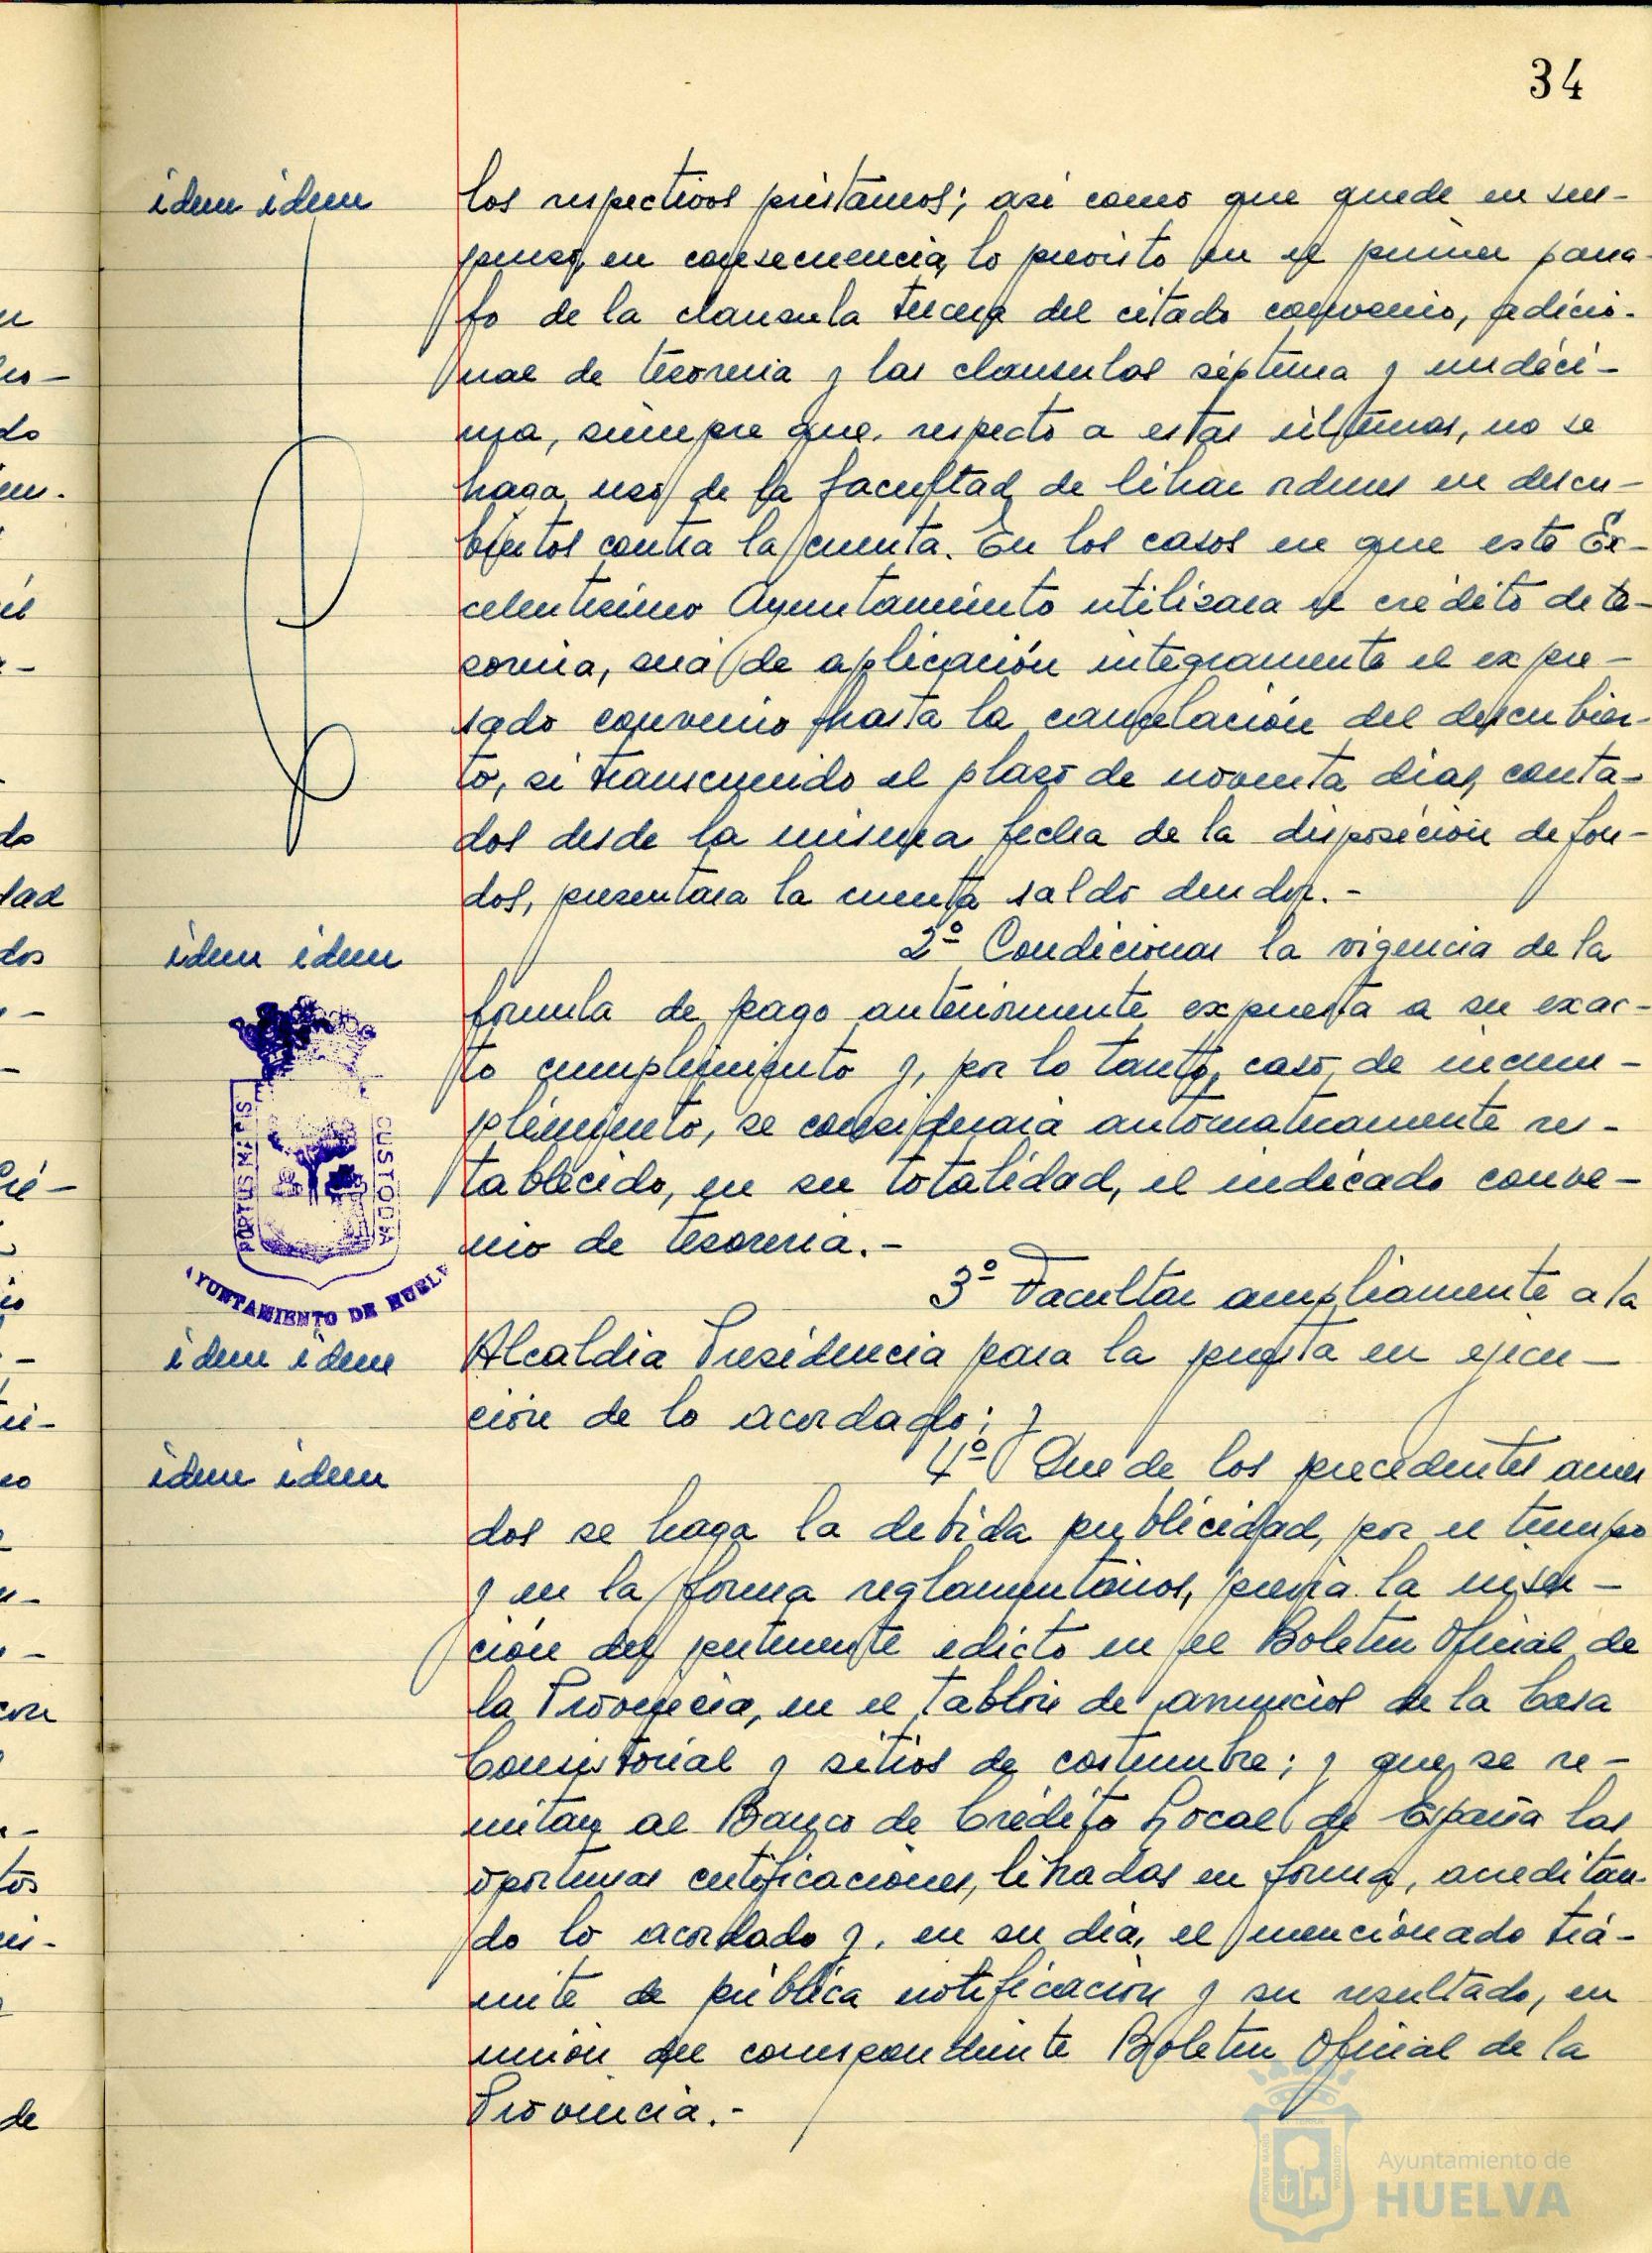 34
idem idem
los respectivos préstamos; asi como que quede en sus-
penso, en consecuencia, lo previsto en el primer parra-
fo de la clausula tercera del citado convenio, adicio-
nal de tesoreria y las clausulas séptima y undéci-
ma, siempre que, respecto a estas últimas, no se
haga uso de la facultad de librar ordenes en descu-
biertos contra la cuenta. En los casos en que este Ex-
celentisimo Ayuntamiento utilizara el crédito de te-
soreria, será de aplicación integramente el expre-
sado convenio hasta la cancelación del descubier-
to, si transcurrido el plazo de noventa dias, conta-
dos desde la misma fecha de la disposición de fon-
dos, presentara la cuenta saldo deudor.-
idem idem
2º Condicionar la vigencia de la
fórmula de pago anteriormente expuesta a su exac-
to cumplimiento y, por lo tanto, caso, de incum-
plimiento, se consideraria automaticamente res-
tablecido, en su totalidad, el indicado conve-
nio de tesoreria.-
PORTUS MARIS
CUSTODIA
AYUNTAMIENTO DE HUELVA
idem idem
3º Facultar ampliamente a la
Alcaldia Presidencia para la puesta en ejecu-
ción de lo acordado; y
idem idem
4º Que de los precedentes acuer
dos se haga la debida publicidad, por el tiempo
y en la forma reglamentarios, previa la inser-
ción del pertinente edicto en el Boletin Oficial de
la Provincia, en el tablón de anuncios de la Casa
Consistorial y sitios de costumbre; y que se re-
mitan al Banco de Crédito Local de España las
oportunas certificaciones, libradas en forma, acreditan-
do lo acordado y, en su dia, el mencionado trá-
mite de pública notificación y su resultado, en
unión del correspondiente Boletin Oficial de la
Provincia.-
Ayuntamiento de
HUELVA